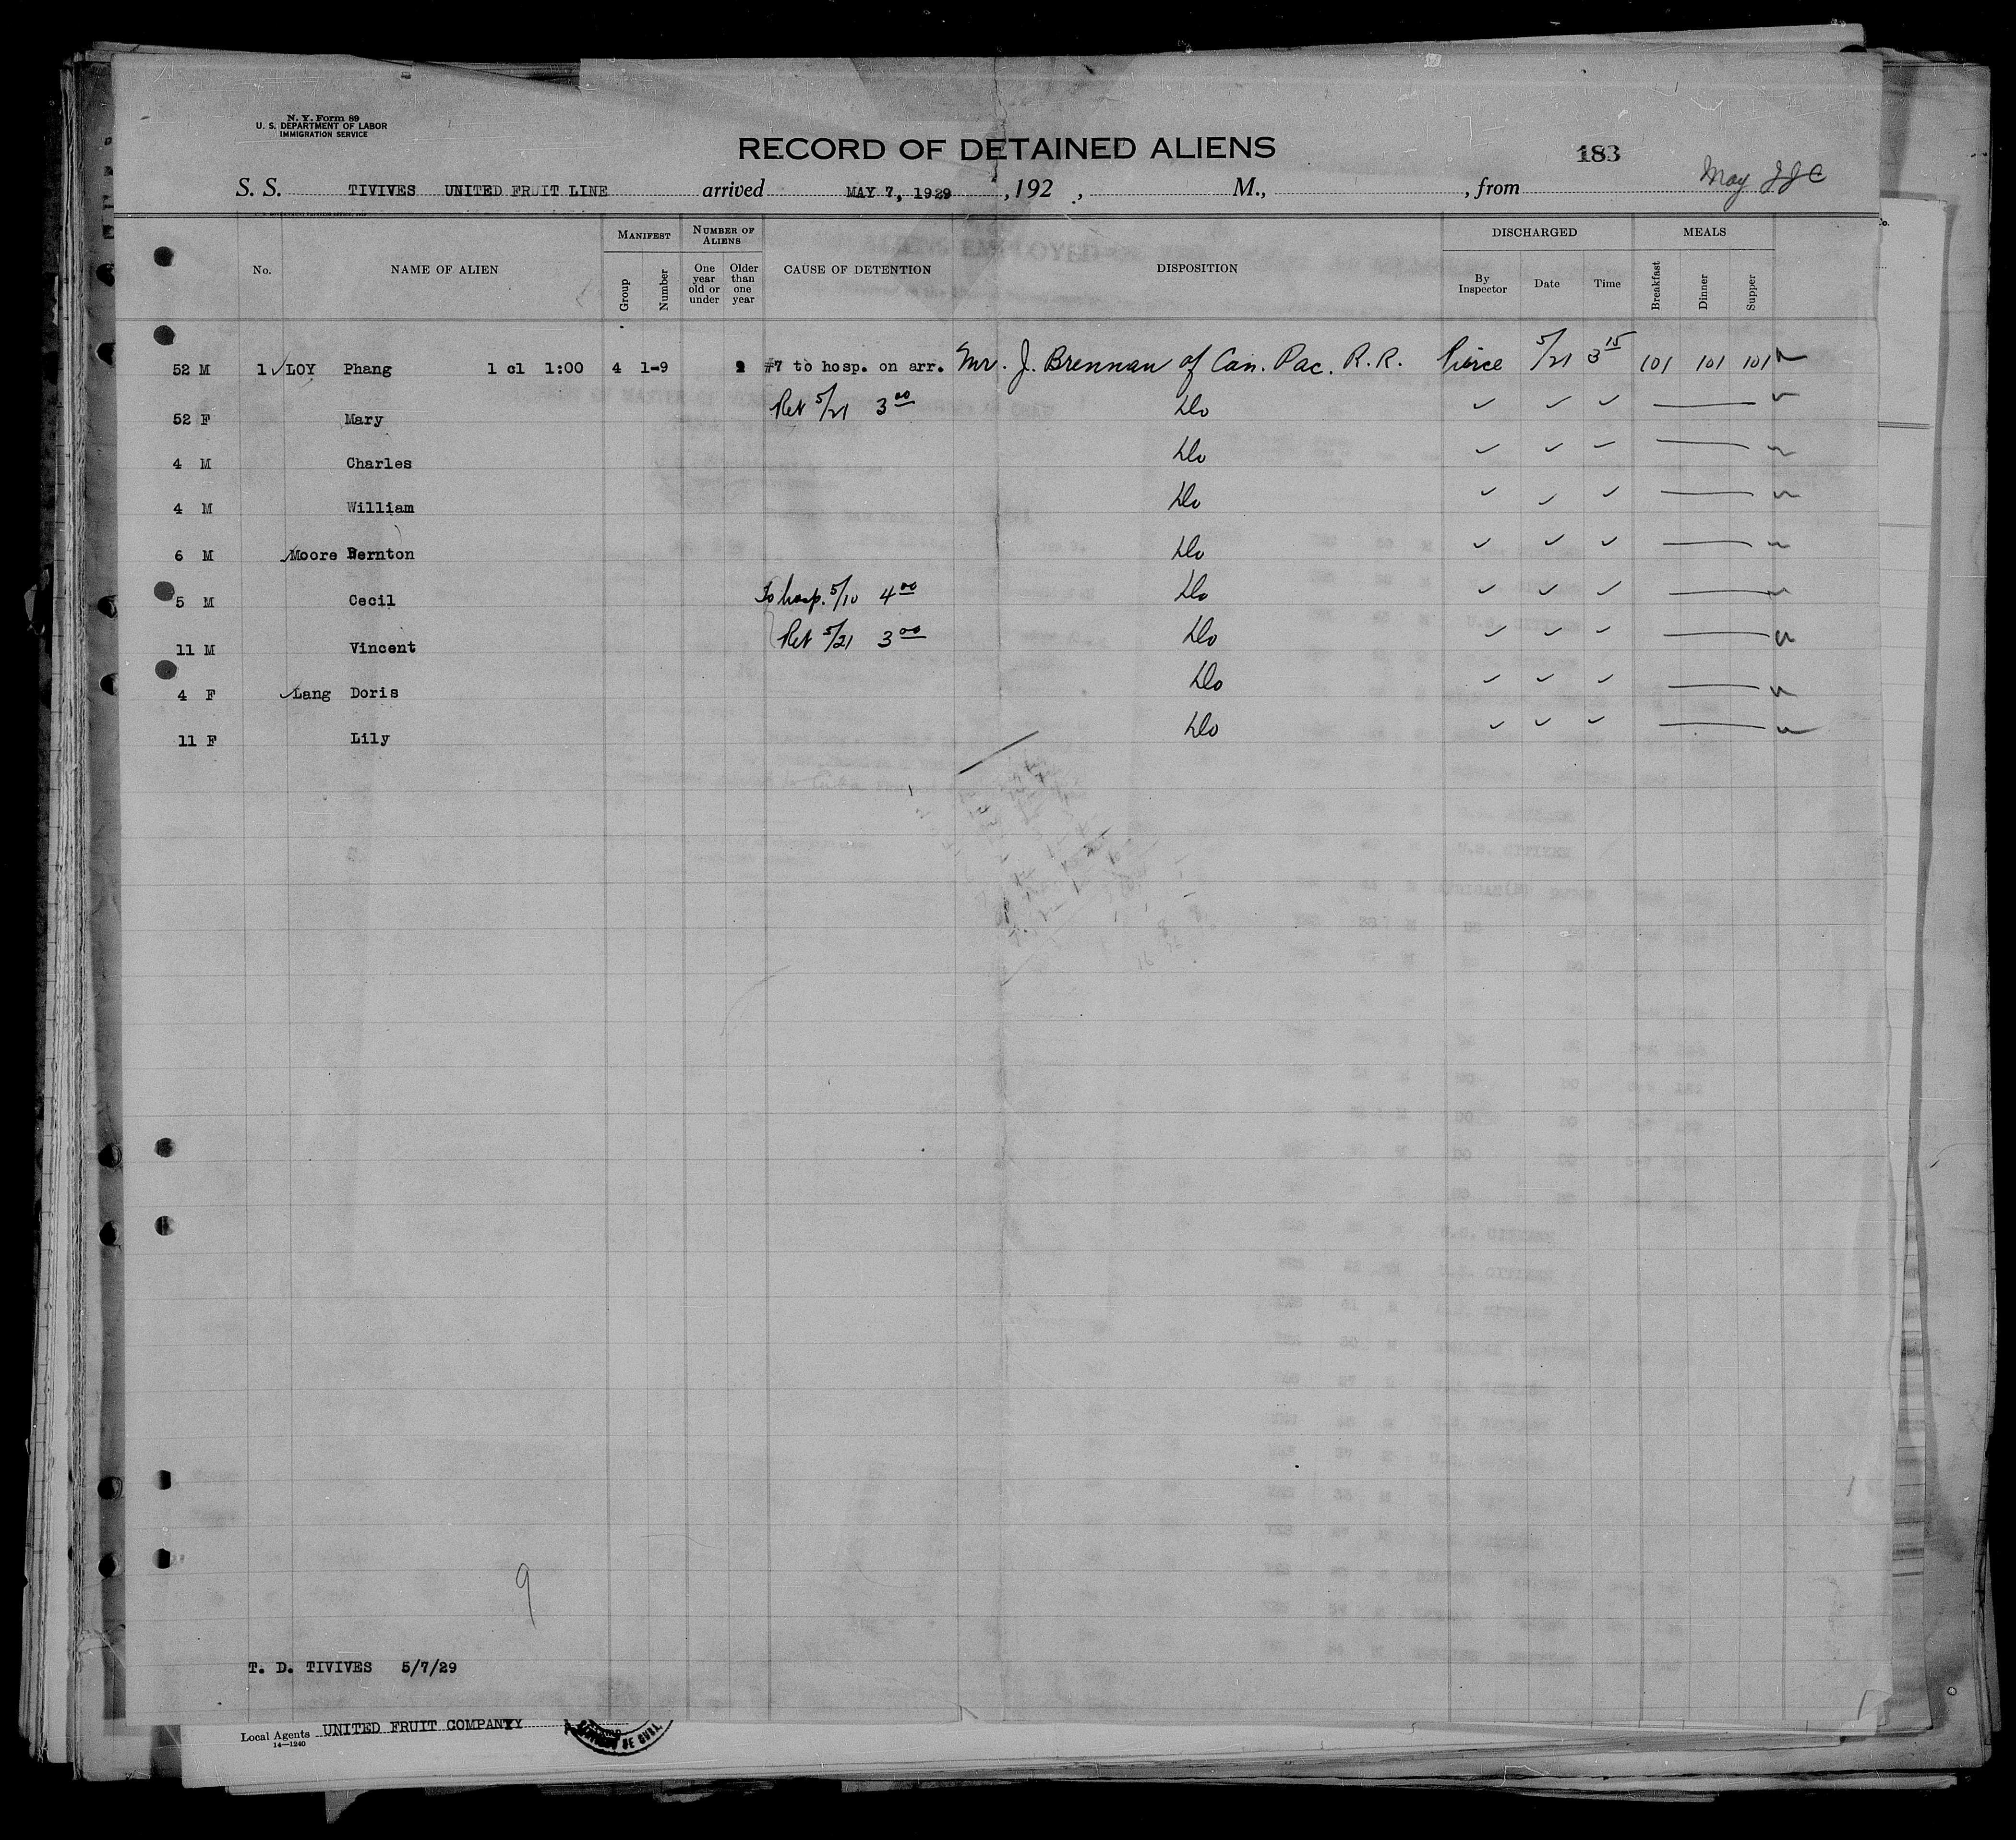 N. Y. Form 89
U. S. DEPARTMENT OF LABOR
IMMIGRATION SERVICE
RECORD OF DETAINED ALIENS
183
S. S. TIVIVES UNITED FRUIT LINE arrived MAY 7, 1929, 192 , M., , from May
No. NAME OF ALIEN MANIFEST Group Number NUMBER OF ALIENS One year old or under Older than one year CAUSE OF DETENTION DISPOSITION DISCHARGED By Inspector Date Time MEALS Breakfast Dinner Supper
52 M 1 ✓ LOY Phang 1 cl 1:00 4 1-9 9 #7 to hosp. on arr. Mr. J. Brennan of Can. Pac. R.R. Pierce 5/21 3 15 101 101 101
52 F Mary Ret 5/21 3 00 Do ✓ ✓ ✓
4 M Charles Do ✓ ✓ ✓
4 M William Do ✓ ✓ ✓
6 M ✓ Moore Bernton Do ✓ ✓ ✓
5 M Cecil To hosp. 5/10 4 00 Do ✓ ✓ ✓
11 M Vincent Ret 5/21 3 00 Do ✓ ✓ ✓
4 F ✓ Lang Doris Do ✓ ✓ ✓
11 F Lily Do ✓ ✓ ✓
9
T. D. TIVIVES 5/7/29
Local Agents UNITED FRUIT COMPANY
14—1240